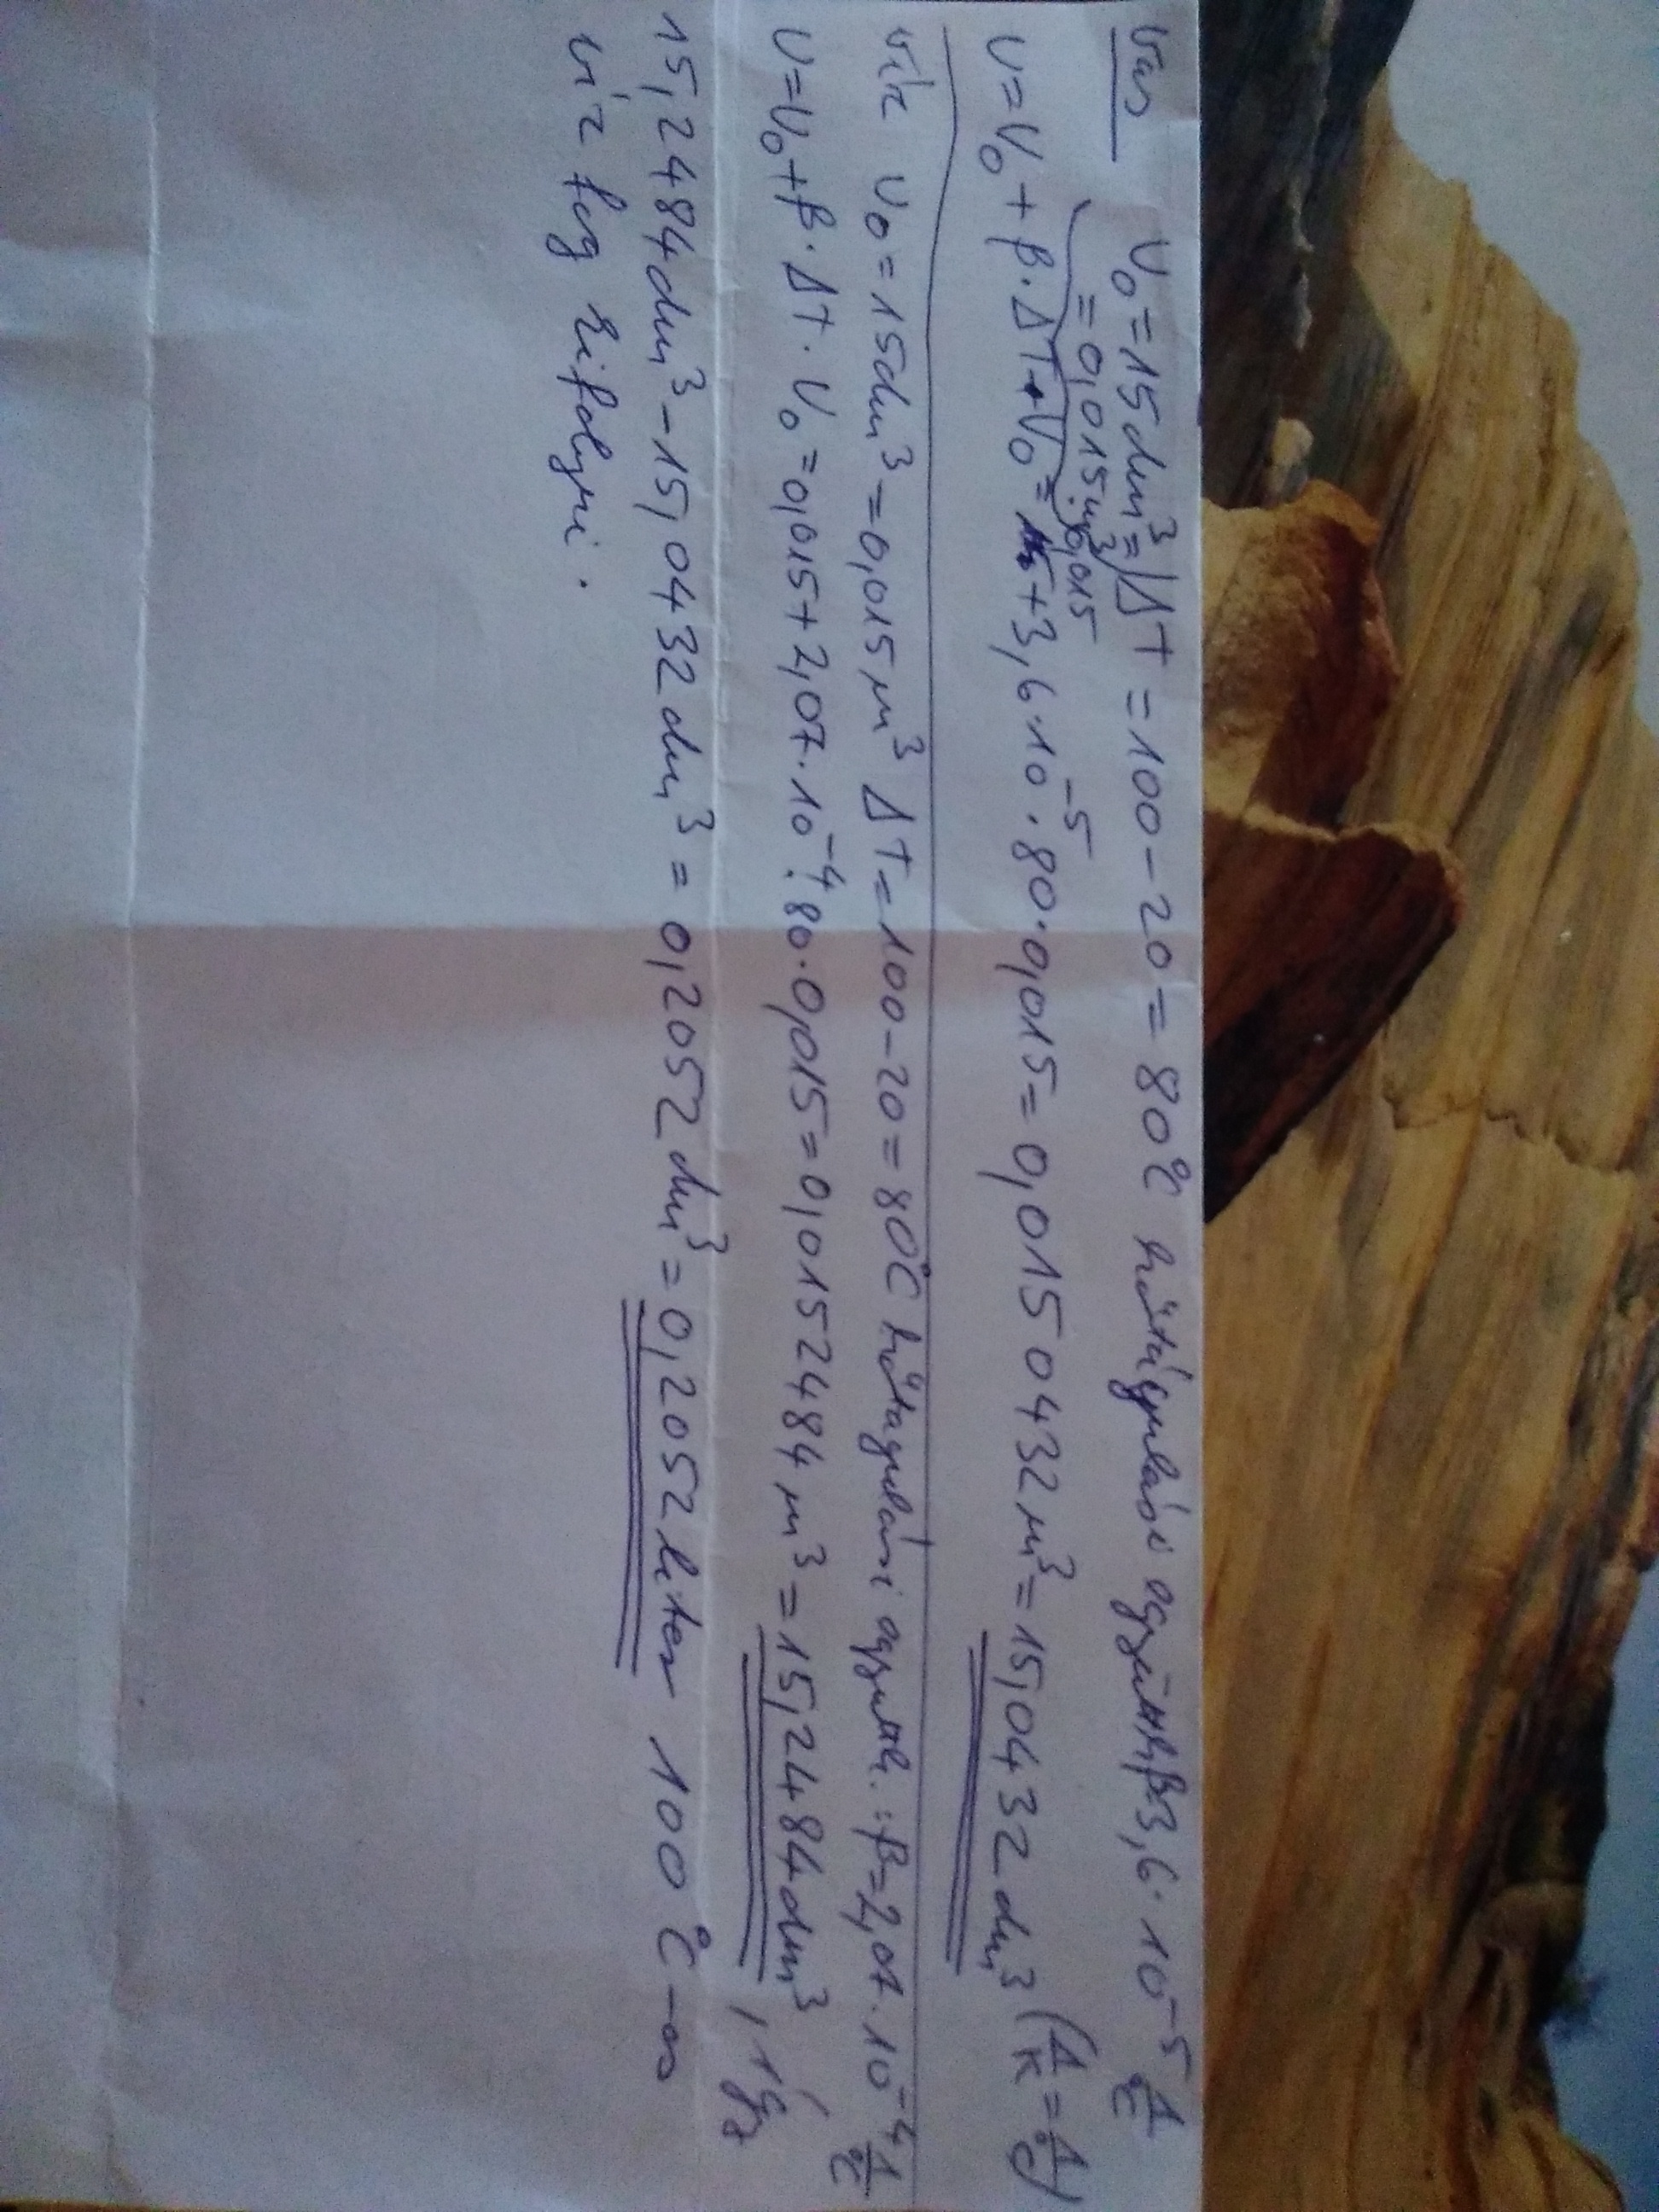 vas V₀=15dm³= ΔT=100-20=80°C hőtágulási együtth β=3,6·10⁻⁵ 1/°C
=0,015m³
V=V₀+β·ΔT·V₀= 0,015+3,6·10⁻⁵·80·0,015=0,0150432m³=15,0432dm³ (1/K=1/°C)
víz V₀=15dm³=0,015m³ ΔT=100-20=80°C hőtágulási együtth.: β=2,07·10⁻⁴ 1/°C
V=V₀+β·ΔT·V₀=0,015+2,07·10⁻⁴·80·0,015=0,0152484m³=15,2484dm³, így
15,2484dm³-15,0432dm³=0,2052dm³=0,2052 liter 100°C-os
víz fog kifolyni.